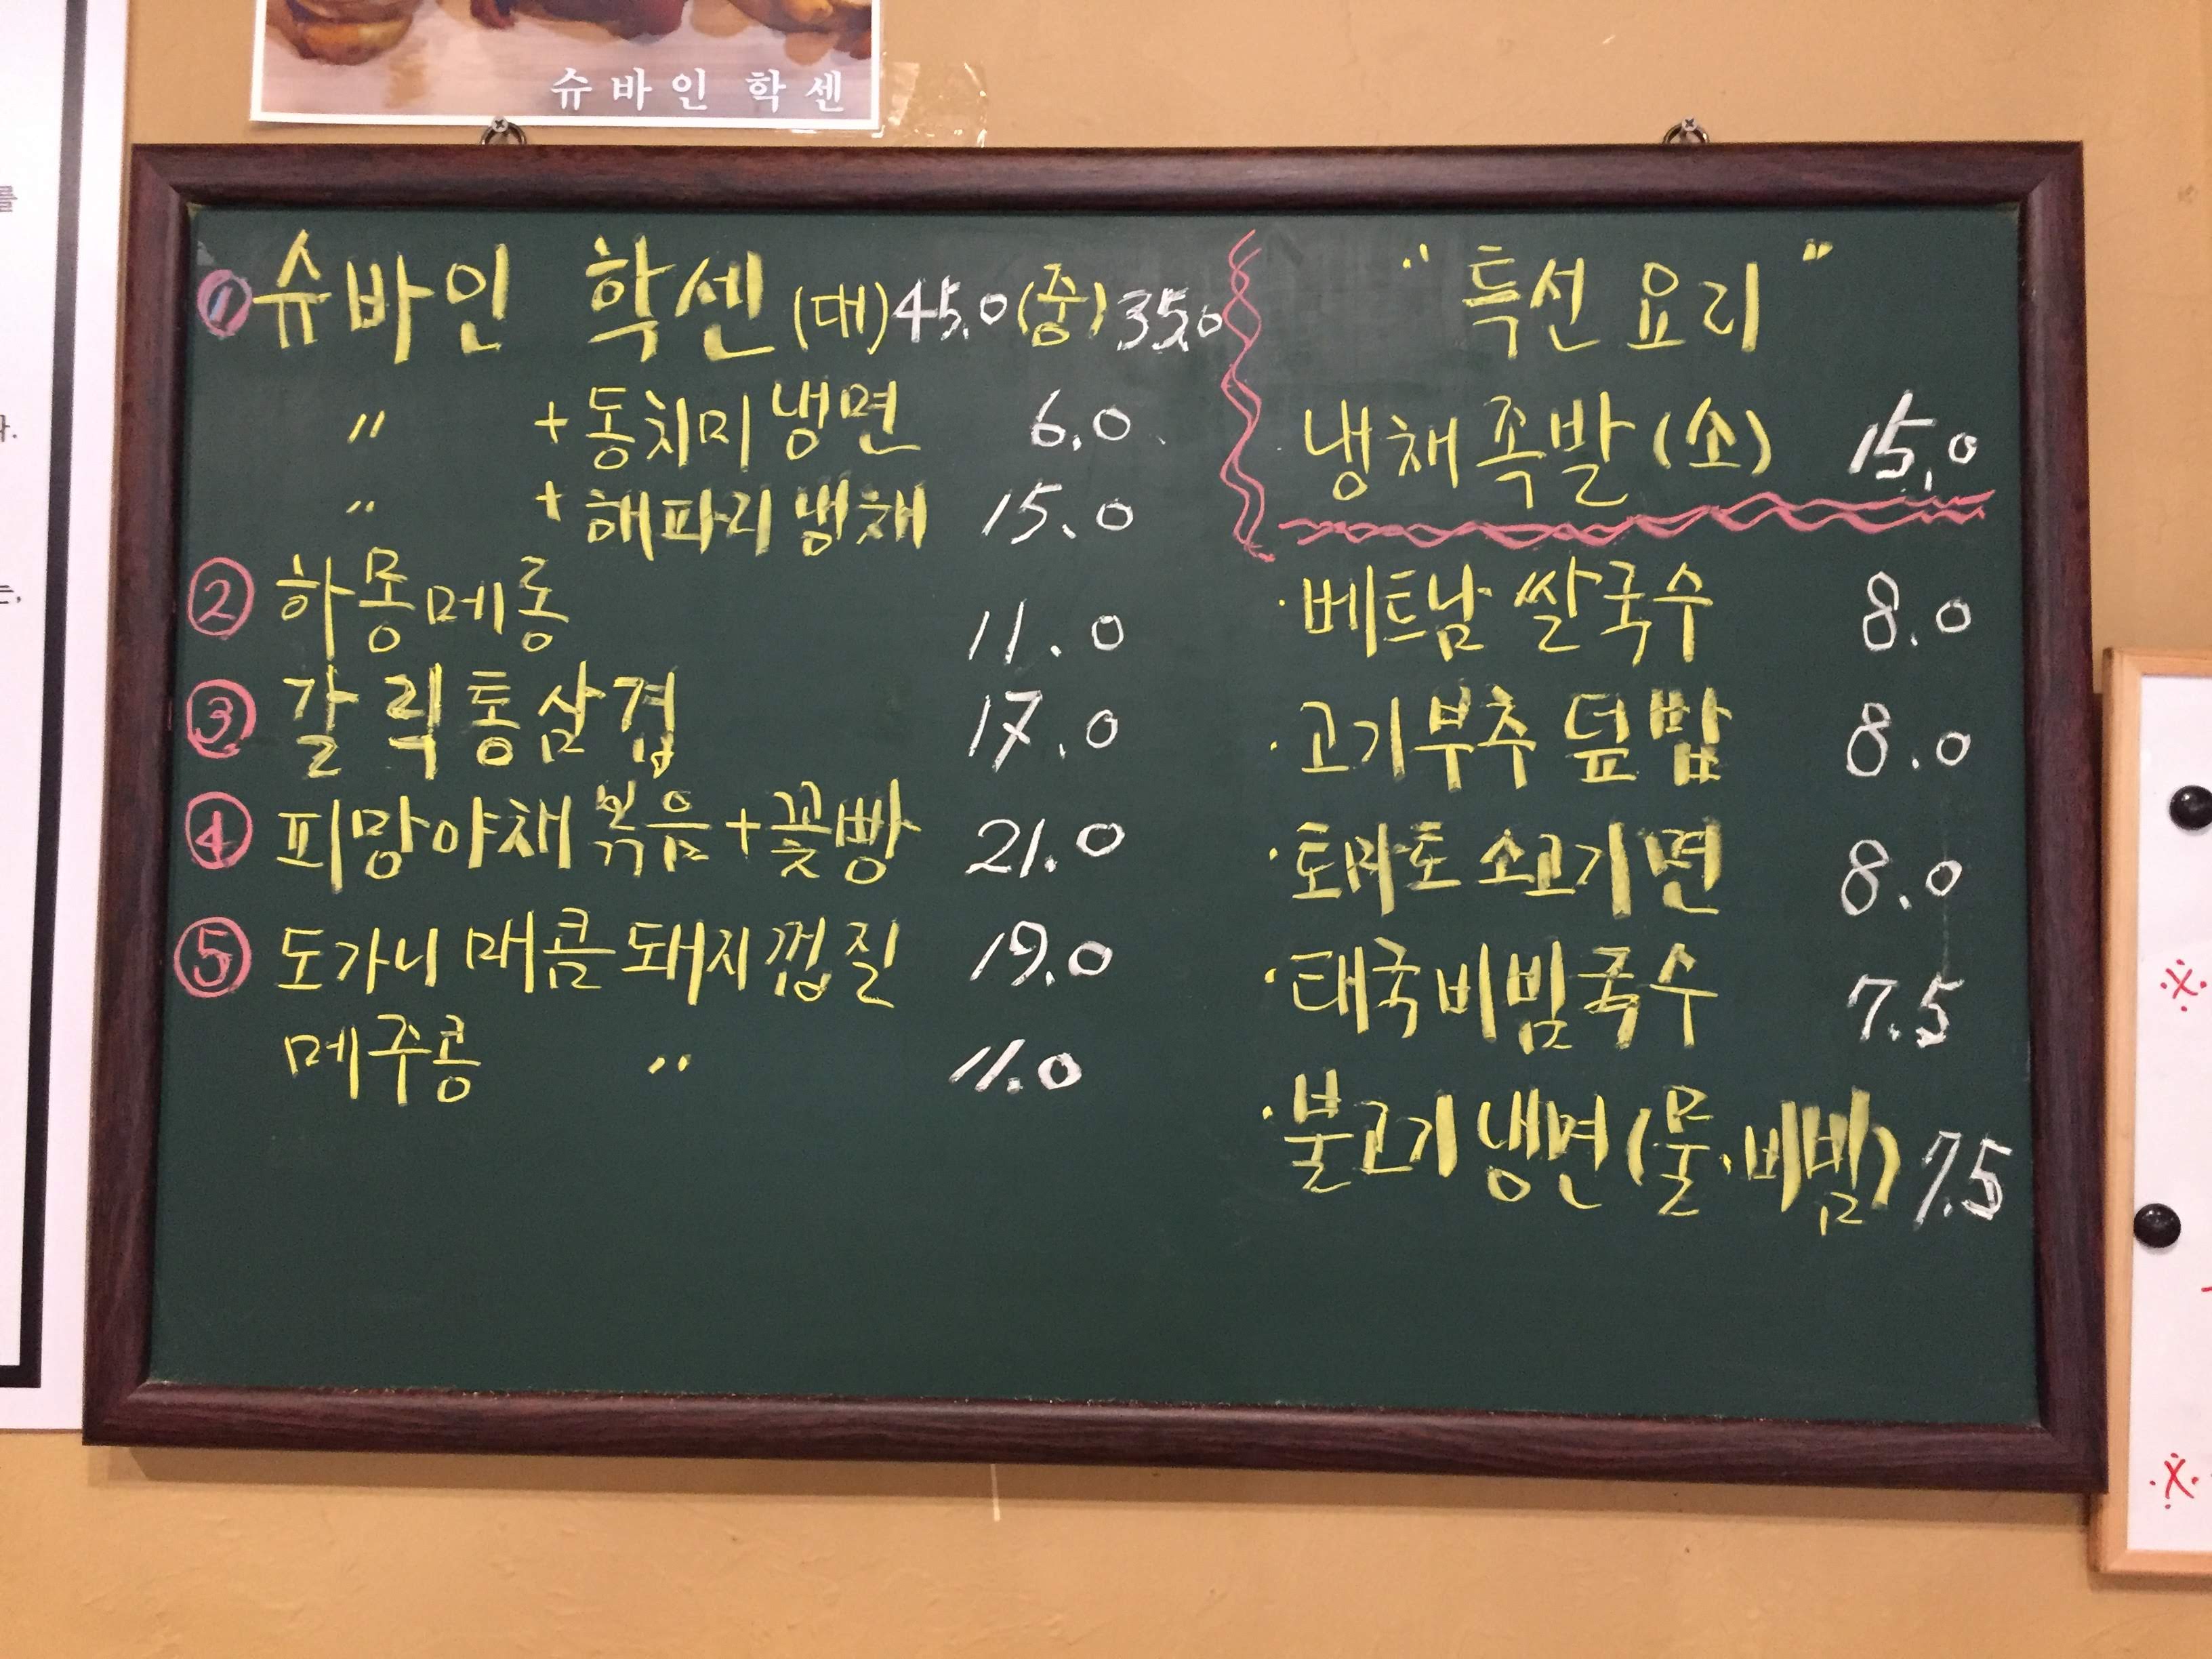 슈바인 학센
① 슈바인 학센 (대) 45.0 (중) 35.0
〃 + 동치미 냉면 6.0
〃 + 해파리 냉채 15.0
② 하몽메롱 11.0
③ 갈릭통삼겹 17.0
④ 피망야채볶음+꽃빵 21.0
⑤ 도가니 매콤돼지껍질 19.0
메주콩 〃 11.0
"특선요리"
냉채족발(소) 15.0
·베트남 쌀국수 8.0
·고기부추 덮밥 8.0
·토마토 소고기면 8.0
·태국비빔국수 7.5
·불고기 냉면(물·비빔) 7.5
를
※
※